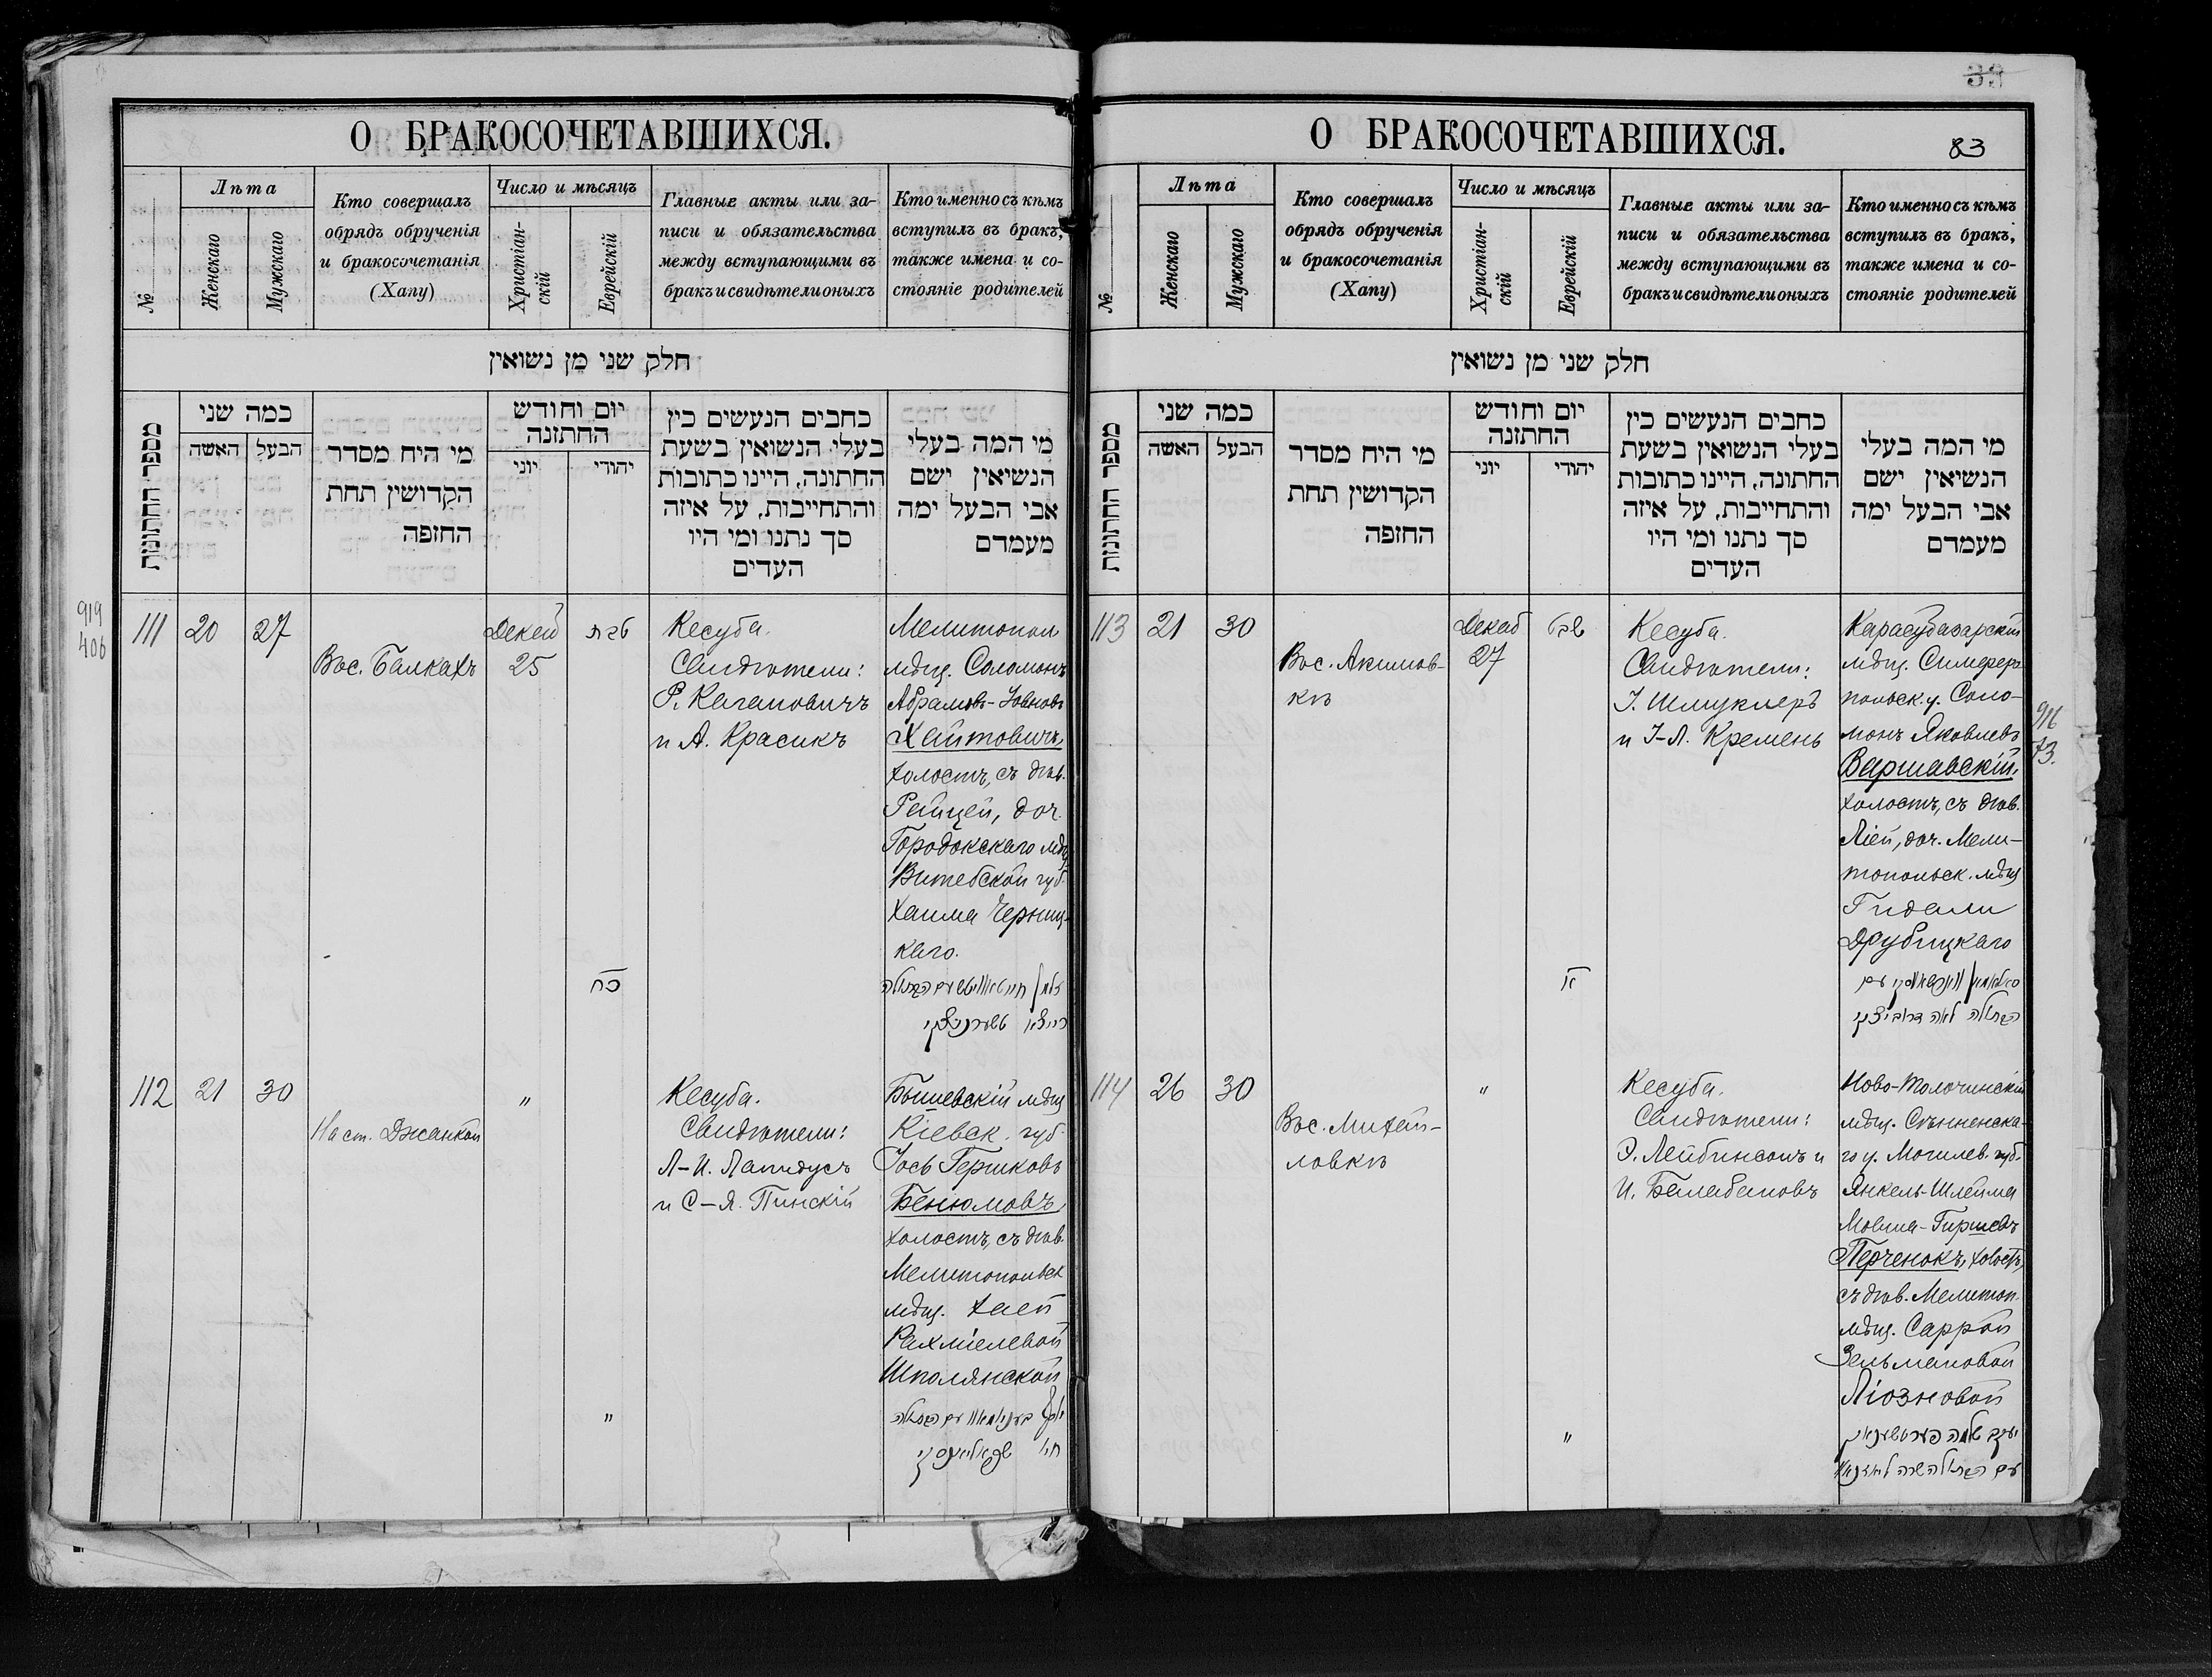 О БРАКОСОЧЕТАВШИХСЯ.
№
Лѣта
Женскаго
Мужскаго
Кто совершалъ
обрядъ обрученія
и бракосочетанія
(Хапу)
Число и мѣсяцъ
Христіан-
скій
Еврейскій
Главные акты или за-
писи и обязательства
между вступающими въ
бракъ и свидѣтели оныхъ
Кто именно съ кѣмъ
вступилъ въ бракъ,
также имена и со-
стояніе родителей
חלק שני מן נשואין
מספר החתונות
כמה שני
האשה
הבעל
מי היח מסדר
הקדושין תחת
החזפה
יום וחודש
החתזנה
יוני
יהודי
כחבים הנעשים כין
בעלי הנשואין בשעת
החתונה, היינו כתובות
והתחייבות, על איזה
סך נתנו ומי היו
העדים
מי המה בעלי
הנשיאין ישם
אבי הבעל ימה
מעמדם
919
406
111
20
27
Вос. Балкахъ
Декаб
25
טבת
כח
Кесуба.
Свидѣтели:
Р. Кагановичъ
и А. Красикъ
Мелитопол
мѣщ. Соломонъ
Абрамъ-Іовновъ
Хайтовичъ,
холостъ, съ дѣв.
Рейцей, доч.
Городокскаго мѣщ
Витебской губ.
Хаима Черниц-
каго.
112
21
30
На ст. Джанкой
"
"
Кесуба.
Свидѣтели:
Л-И. Лапидусъ
и С-Я. Пинскій
Бышевскій мѣщ
Кіевск. губ.
Іось Гершковъ
Бенюмовъ,
холостъ, съ дѣв.
Мелитопольск
мѣщ. Хаей
Рахміелевой
Шполянской
חיה שפאליאנסקי
О БРАКОСОЧЕТАВШИХСЯ.
83
№
Лѣта
Женскаго
Мужскаго
Кто совершалъ
обрядъ обрученія
и бракосочетанія
(Хапу)
Число и мѣсяцъ
Христіан-
скій
Еврейскій
Главные акты или за-
писи и обязательства
между вступающими въ
бракъ и свидѣтели оныхъ
Кто именно съ кѣмъ
вступилъ въ бракъ,
также имена и со-
стояніе родителей
חלק שני מן נשואין
מספר החתונות
כמה שני
האשה
הבעל
מי היח מסדר
הקדושין תחת
החזפה
יום וחודש
החתזנה
יוני
יהודי
כחבים הנעשים כין
בעלי הנשואין בשעת
החתונה, היינו כתובות
והתחייבות, על איזה
סך נתנו ומי היו
העדים
מי המה בעלי
הנשיאין ישם
אבי הבעל ימה
מעמדם
113
21
30
Вос. Акимов-
кѣ
Декаб
27
שבט
א
Кесуба.
Свидѣтели:
І. Шмуклеръ
и І-Л. Кремень
Карасубазарскій
мѣщ. Симферо-
польск. у. Соло-
монъ Яковлевъ
Варшавскій,
холостъ, съ дѣв.
Ліей, доч. Мели-
топольск. мѣщ
Гидали
Друбицкаго
הבתולה לאה דרוביצקי
916
73.
114
26
30
Вос. Михай-
ловкѣ
"
"
Кесуба.
Свидѣтели:
Э. Лейбинсонъ и
И. Балабановъ
Ново-Толочинскій
мѣщ. Сѣнненска-
го у. Могилев. губ.
Янкель-Шлейма
Мовша-Гиршевъ
Перченокъ, холостъ,
съ дѣв. Мелитоп.
мѣщ. Саррой
Зельмановой
Ліозновой
יעקב שלמה פערטשענאק
עם הבתולה שרה ליאזנאוו